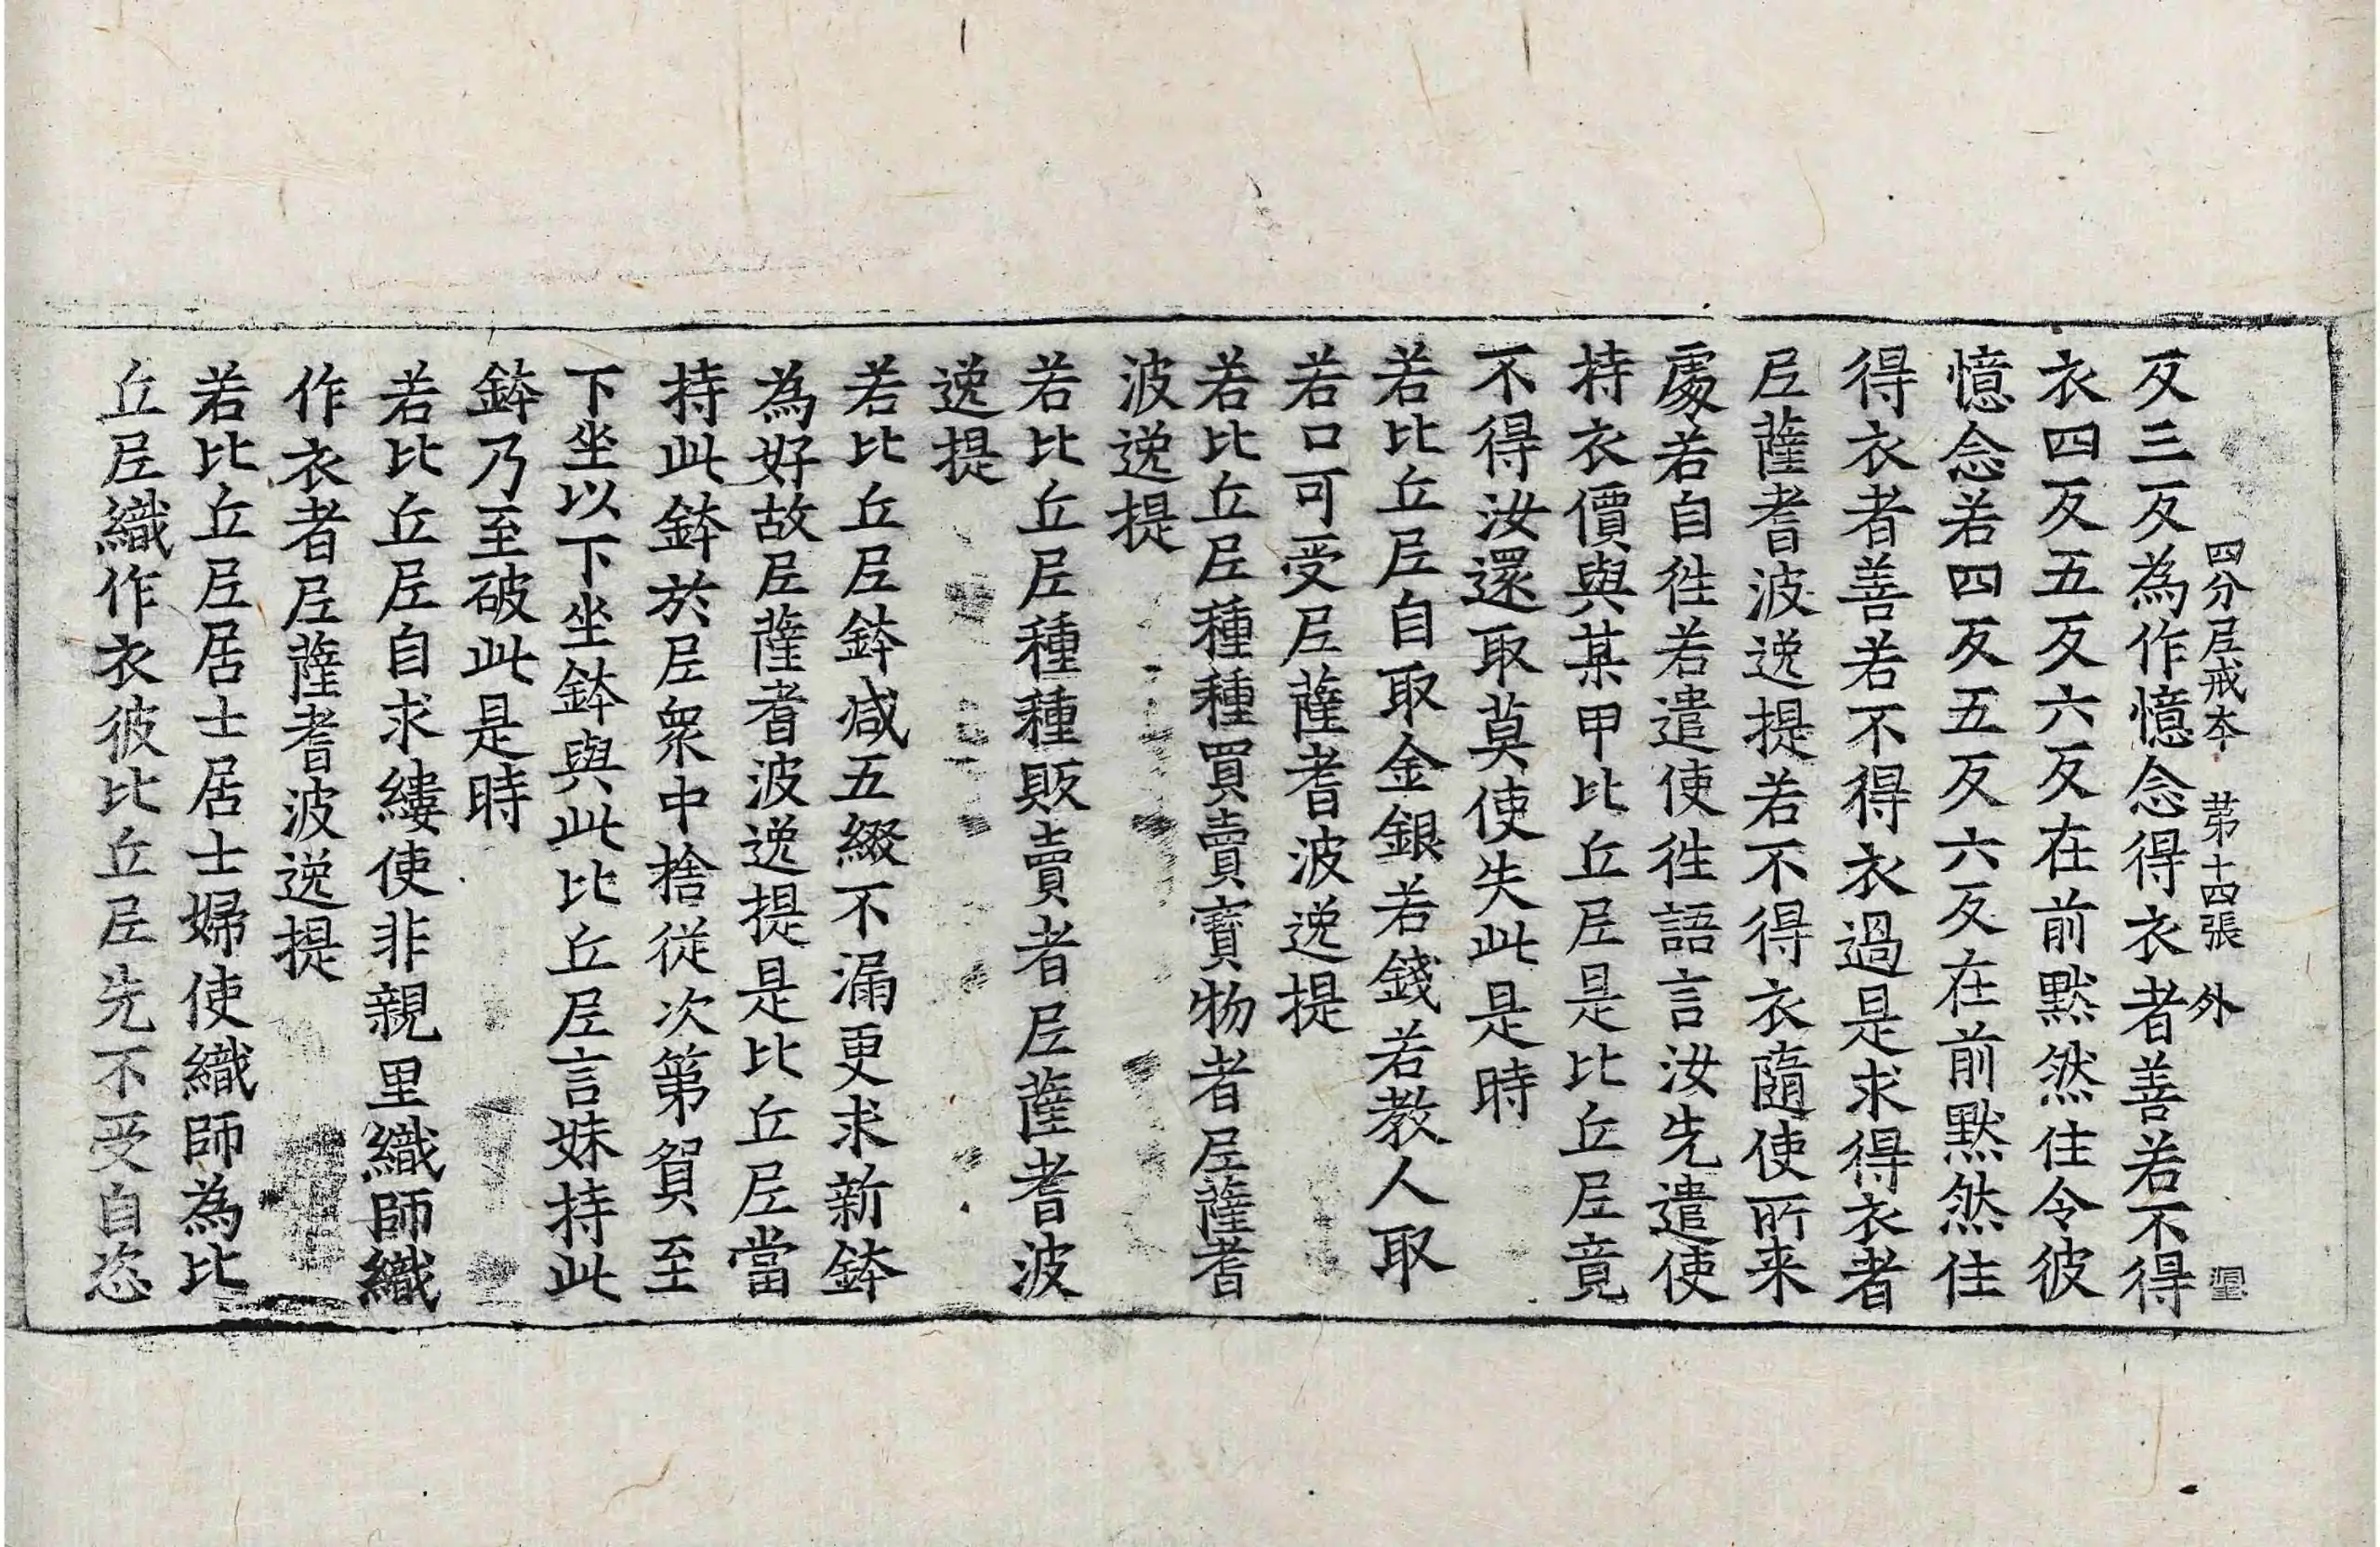 四分尼戒本 苐十四張 外
反三反為作憶念得衣者善若不得
衣四反五反六反在前黙然住令彼
憶念若四反五反六反在前黙然住
得衣者善若不得衣過是求得衣者
尼薩耆波逸提若不得衣隨使所来
處若自徃若遣使徃語言汝先遣使
持衣價與某甲比丘尼是比丘尼竟
不得汝還取莫使失此是時
若比丘尼自取金銀若錢若教人取
若口可受尼薩耆波逸提
若比丘尼種種買賣寶物者尼薩耆
波逸提
若比丘尼種種販賣者尼薩耆波
逸提
若比丘尼鉢减五綴不漏更求新鉢
為好故尼薩耆波逸提是比丘尼當
持此鉢於尼衆中捨從次第貿至
下坐以下坐鉢與此比丘尼言妹持此
鉢乃至破此是時
若比丘尼自求縷使非親里織師織
作衣者尼薩耆波逸提
若比丘尼居士居士婦使織師為比
丘尼織作衣彼比丘尼先不受自恣